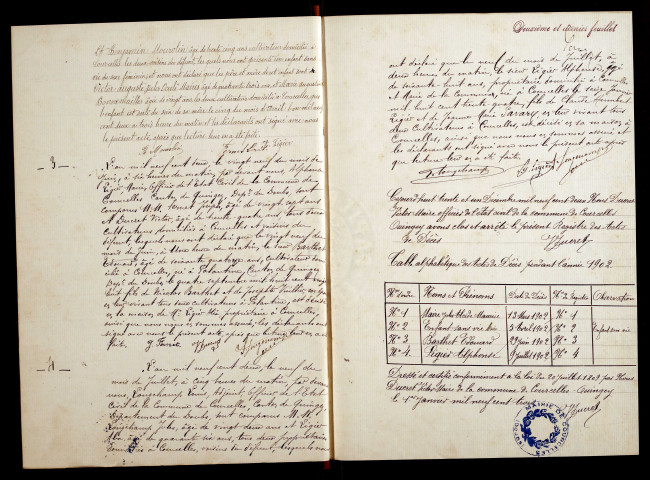 Et Benjamin Mourolin, âgé de trente cinq ans cultivateur domicilié à
Courcelles les deux voisins du défunt, lesquels nous ont présenté un enfant sans
vie de sexe féminin, et nous ont déclaré que les père et mère de cet enfant sont
Victor Auguste Jules Émile Maire âgé de quarante trois ans et Marie Augustine
âgée de vingt ans les deux cultivateurs domiciliés à Courcelles, que
l'enfant est sorti du sein de sa mère le cinq du mois d'Avril
cent deux à trois heures du matin et les déclarants ont signé avec nous
le présent acte, après que lecture leur en a été faite.
- 3 -
L'an mil neuf cent deux le vingt neuf du mois de
Juin, à six heures du matin, par devant nous, Alphonse
Ligier Maire, Officier de l'État Civil de la Commune de
Courcelles Canton de Quingey, Dépt du Doubs, sont
comparus M.M. Joseph, âgé de vingt sept ans
et Ducret Victor, âgé de trente quatre ans, tous deux
cultivateurs domiciliés à Courcelles et voisins du
défunt, lesquels nous ont déclaré que le vingt neuf du
mois de Juin, à une heure du matin, le sieur Barthet
Edouard, âgé de soixante quatorze ans, cultivateur domi-
cilié à Courcelles, né à Palantine, Canton de Quingey
Dept du Doubs, le quatre septembre mil huit cent vingt
huit fils de Nicolas Barthet et de
leur vivant tous deux cultivateurs à Palantine, est décédé
en la maison de Mr Ligier propriétaire à Courcelles,
ainsi que nous nous en sommes assuré, les déclarants ont
signé avec nous le présent acte après que lecture leur en a été
fait.
- 4 -
L'an mil neuf cent deux, le neuf du
mois de Juillet, à cinq heures du matin, par devant
nous, Longchamp Louis, Adjoint Officier de l'État
Civil de la Commune de Courcelles, Canton de Quingey,
Département du Doubs, sont comparus M.M.
Longchamp Jules, âgé de vingt deux ans et Ligier
âgé de quarante six ans, tous deux propriétaires
domiciliés à Courcelles, voisins du défunt, lesquels nous
Deuxième et dernier feuillet
ont déclaré que le neuf du mois de Juillet, à
deux heures du matin, le sieur Ligier Alphonse, âgé
de soixante huit ans, propriétaire domicilié à Courcelles
et Maire de la Commune, né à Courcelles le seize Janvier
mil huit cent trente quatre, fils de Claude
Ligier et de Jeanne Sarazy en leur vivant tous
deux Cultivateurs à Courcelles, est décédé en sa maison à
Courcelles, ainsi que nous nous en sommes assuré et
les déclarants ont signé avec nous le présent acte après
que lecture leur en a été faite.
L. Longchamp
Cejourd'hui trente et un Décembre mil neuf cent deux Nous Ducret
Victor Maire officier de l'état civil de la commune de Courcelles
Quingey avons clos et arrêté le présent Registre des Actes
de Décès
V Ducret
Table alphabétique des Actes de Décès pendant l'année 1902
Nos d'ordre Noms et Prénoms Date du Décès No du Registre Observation
No 1 Maire Maurice 13 Mars 1902 No 1
No 2 Enfant sans vie 5 Avril 1902 No 2 Enfant sans vie
No 3 Barthet Edouard 29 Juin 1902 No 3
No 4 Ligier Alphonse 9 Juillet 1902 No 4
Dressé et certifié conformément à la loi du 20 juillet 1807 par Nous
Ducret Victor Maire de la commune de Courcelles-Quingey
le 1er janvier mil neuf cent trois
V Ducret
MAIRIE DE COURCELLES